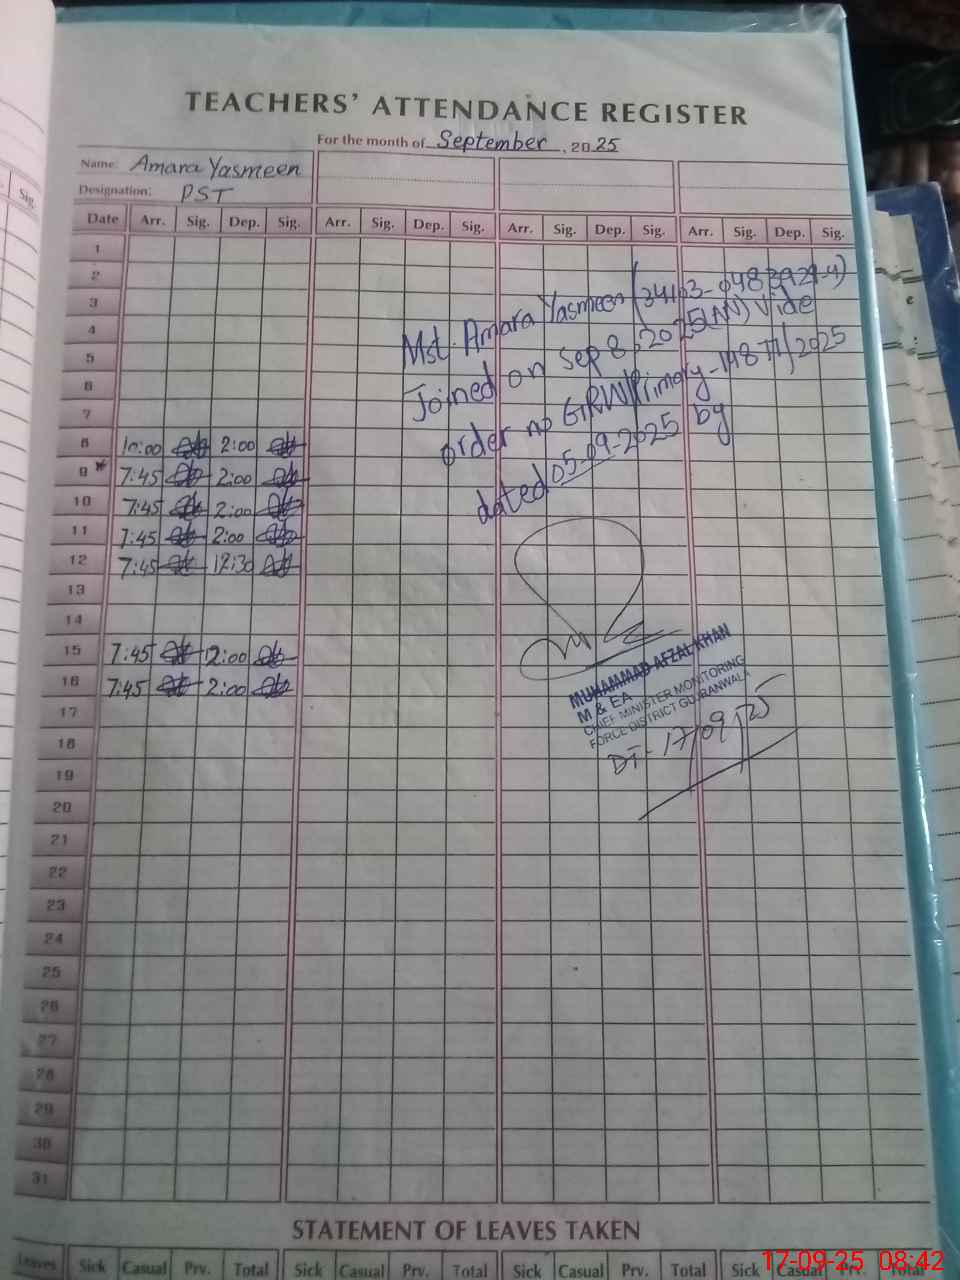 TEACHERS' ATTENDANCE REGISTER
For the month of September, 2025
Name: Amara Yasmeen
Designation: PST
Date Arr. Sig. Dep. Sig. Arr. Sig. Dep. Sig. Arr. Sig. Dep. Sig. Arr. Sig. Dep. Sig.
1
2
3
4
5
6
7
8 10:00 2:00
9 7:45 2:00
10 7:45 2:00
11 7:45 2:00
12 7:45 12:30
13
14
15 7:45 2:00
16 7:45 2:00
17
18
19
20
21
22
23
24
25
26
27
28
29
30
31
Mst. Amara Yasmeen
Joined on Sep 8, 2025(AN) Vide
order no GRW/Primary-14877/2025
dated 05-09-2025 by
MUHAMMAD AFZAL KHAN
M & EA
CHIEF MINISTER MONITORING
FORCE DISTRICT GUJRANWALA
DT-17/09/25
STATEMENT OF LEAVES TAKEN
Leaves Sick Casual Prv. Total Sick Casual Prv. Total Sick Casual Prv. Total Sick Casual Prv. Total
17-09-25 08:42
Sig.